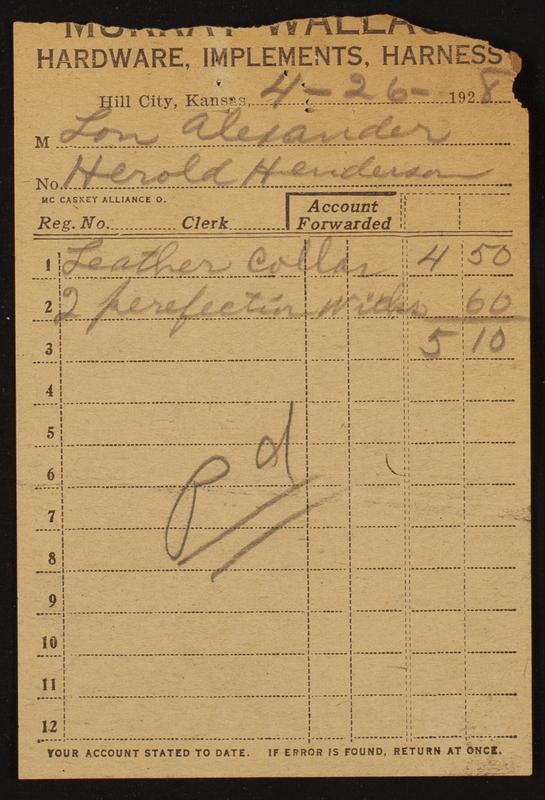 MURRAY WALLACE
HARDWARE, IMPLEMENTS, HARNESS
Hill City, Kansas, 4-26- 1928
M Lon Alexander
No. Herold Henderson
MC CASKEY ALLIANCE O.
Reg. No. Clerk Account Forwarded
1 Leather Collar 4 50
2 2 perefection wicks 60
3 5 10
4
5
6
Pd
7
8
9
10
11
12
YOUR ACCOUNT STATED TO DATE. IF ERROR IS FOUND, RETURN AT ONCE.